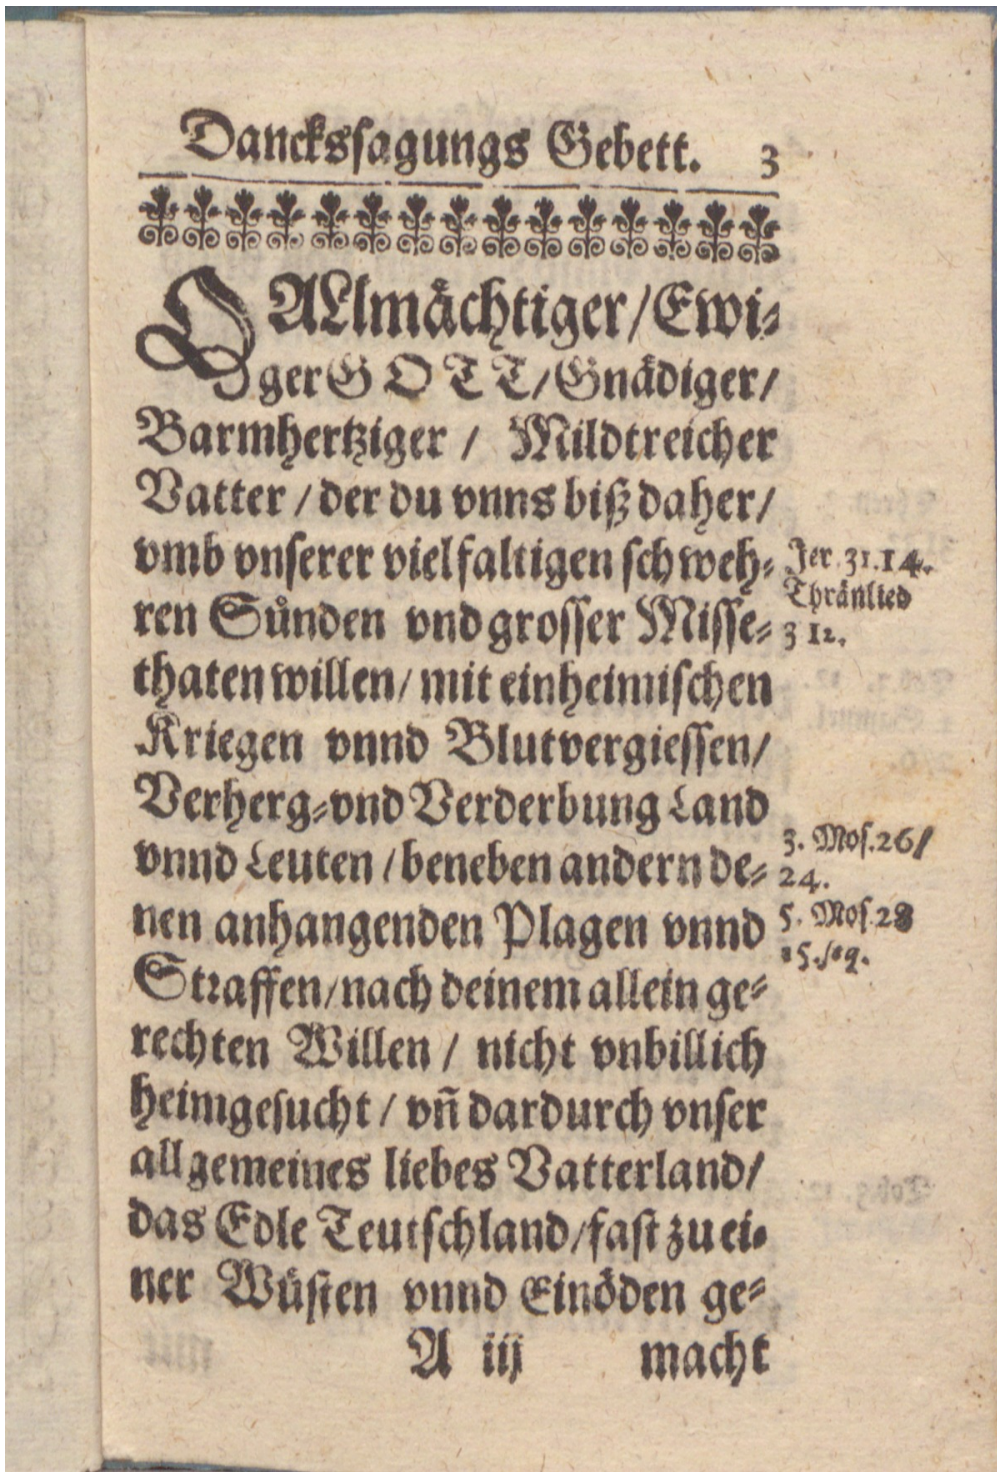 Danckssagungs Gebett. 3
O ALlmächtiger/Ewi-
ger GOTT/Gnädiger/
Barmhertziger / Mildtreicher
Vatter / der du vnns biß daher/
vmb vnserer vielfaltigen schweh-
ren Sůnden vnd grosser Misse-
thaten willen/ mit einheimischen
Kriegen vnnd Blutvergiessen/
Verherg-vnd Verderbung Land
vnnd Leuten / beneben andern de-
nen anhangenden Plagen vnnd
Straffen/nach deinem allein ge-
rechten Willen / nicht vnbillich
heimgesucht / vn̄ dardurch vnser
allgemeines liebes Vatterland/
das Edle Teutschland/fast zu ei-
ner Wüsten vnnd Einöden ge-
A iij macht
Jer. 31.14.
Thränlied
3 12.
3. Mos.26/
24.
5. Mos.28